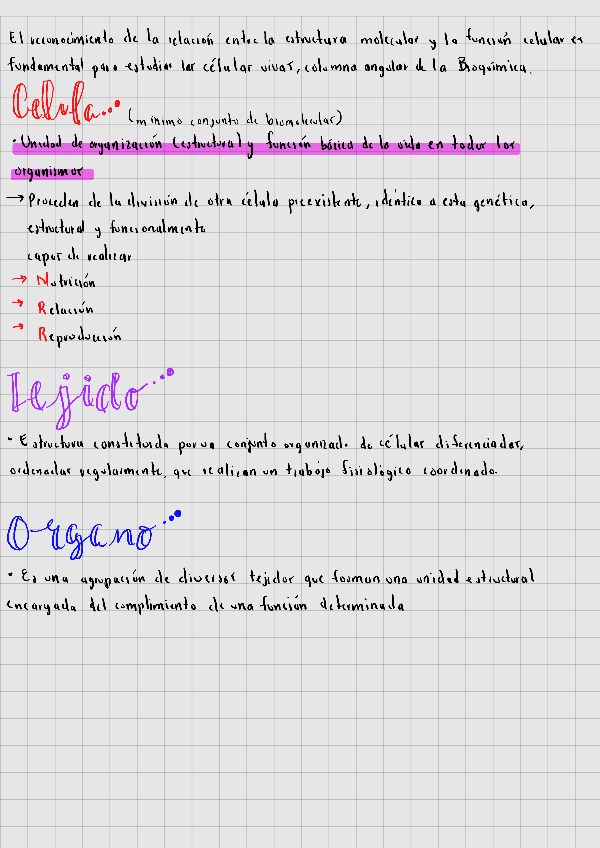 El reconocimiento de la relación entre la estructura molecular y la función celular es
fundamental para estudiar las células vivas, columna angular de la Bioquímica.
Celula... (mínimo conjunto de biomoleculas)
• Unidad de organización (estructural) y función básica de la vida en todos los
organismos
→ Proceden de la división de otra célula preexistente, idéntica a esta genética,
estructural y funcionalmente
capaz de realizar
→ Nutrición
→ Relación
→ Reproducción
Tejido...
• Estructura constituida por un conjunto organizado de células diferenciadas,
ordenadas regularmente, que realizan un trabajo fisiológico coordinado.
Organo...
• Es una agrupación de diversos tejidos que forman una unidad estructural
encargada del cumplimiento de una función determinada